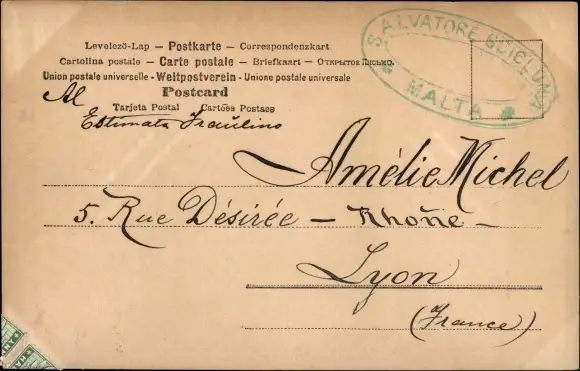 Levelező-Lap – Postkarte – Correspondenzkart
Cartolina postale – Carte postale – Briefkaart – Открытое письмо.
Union postale universelle - Weltpostverein - Unione postale universale
Postcard
Tarjeta Postal Cartões Postaes
SALVATORE SCICLUNA
MALTA
Al
Estimata Fraulino
Amélie Michel
5. Rue Désirée – Rhône –
Lyon
(France)